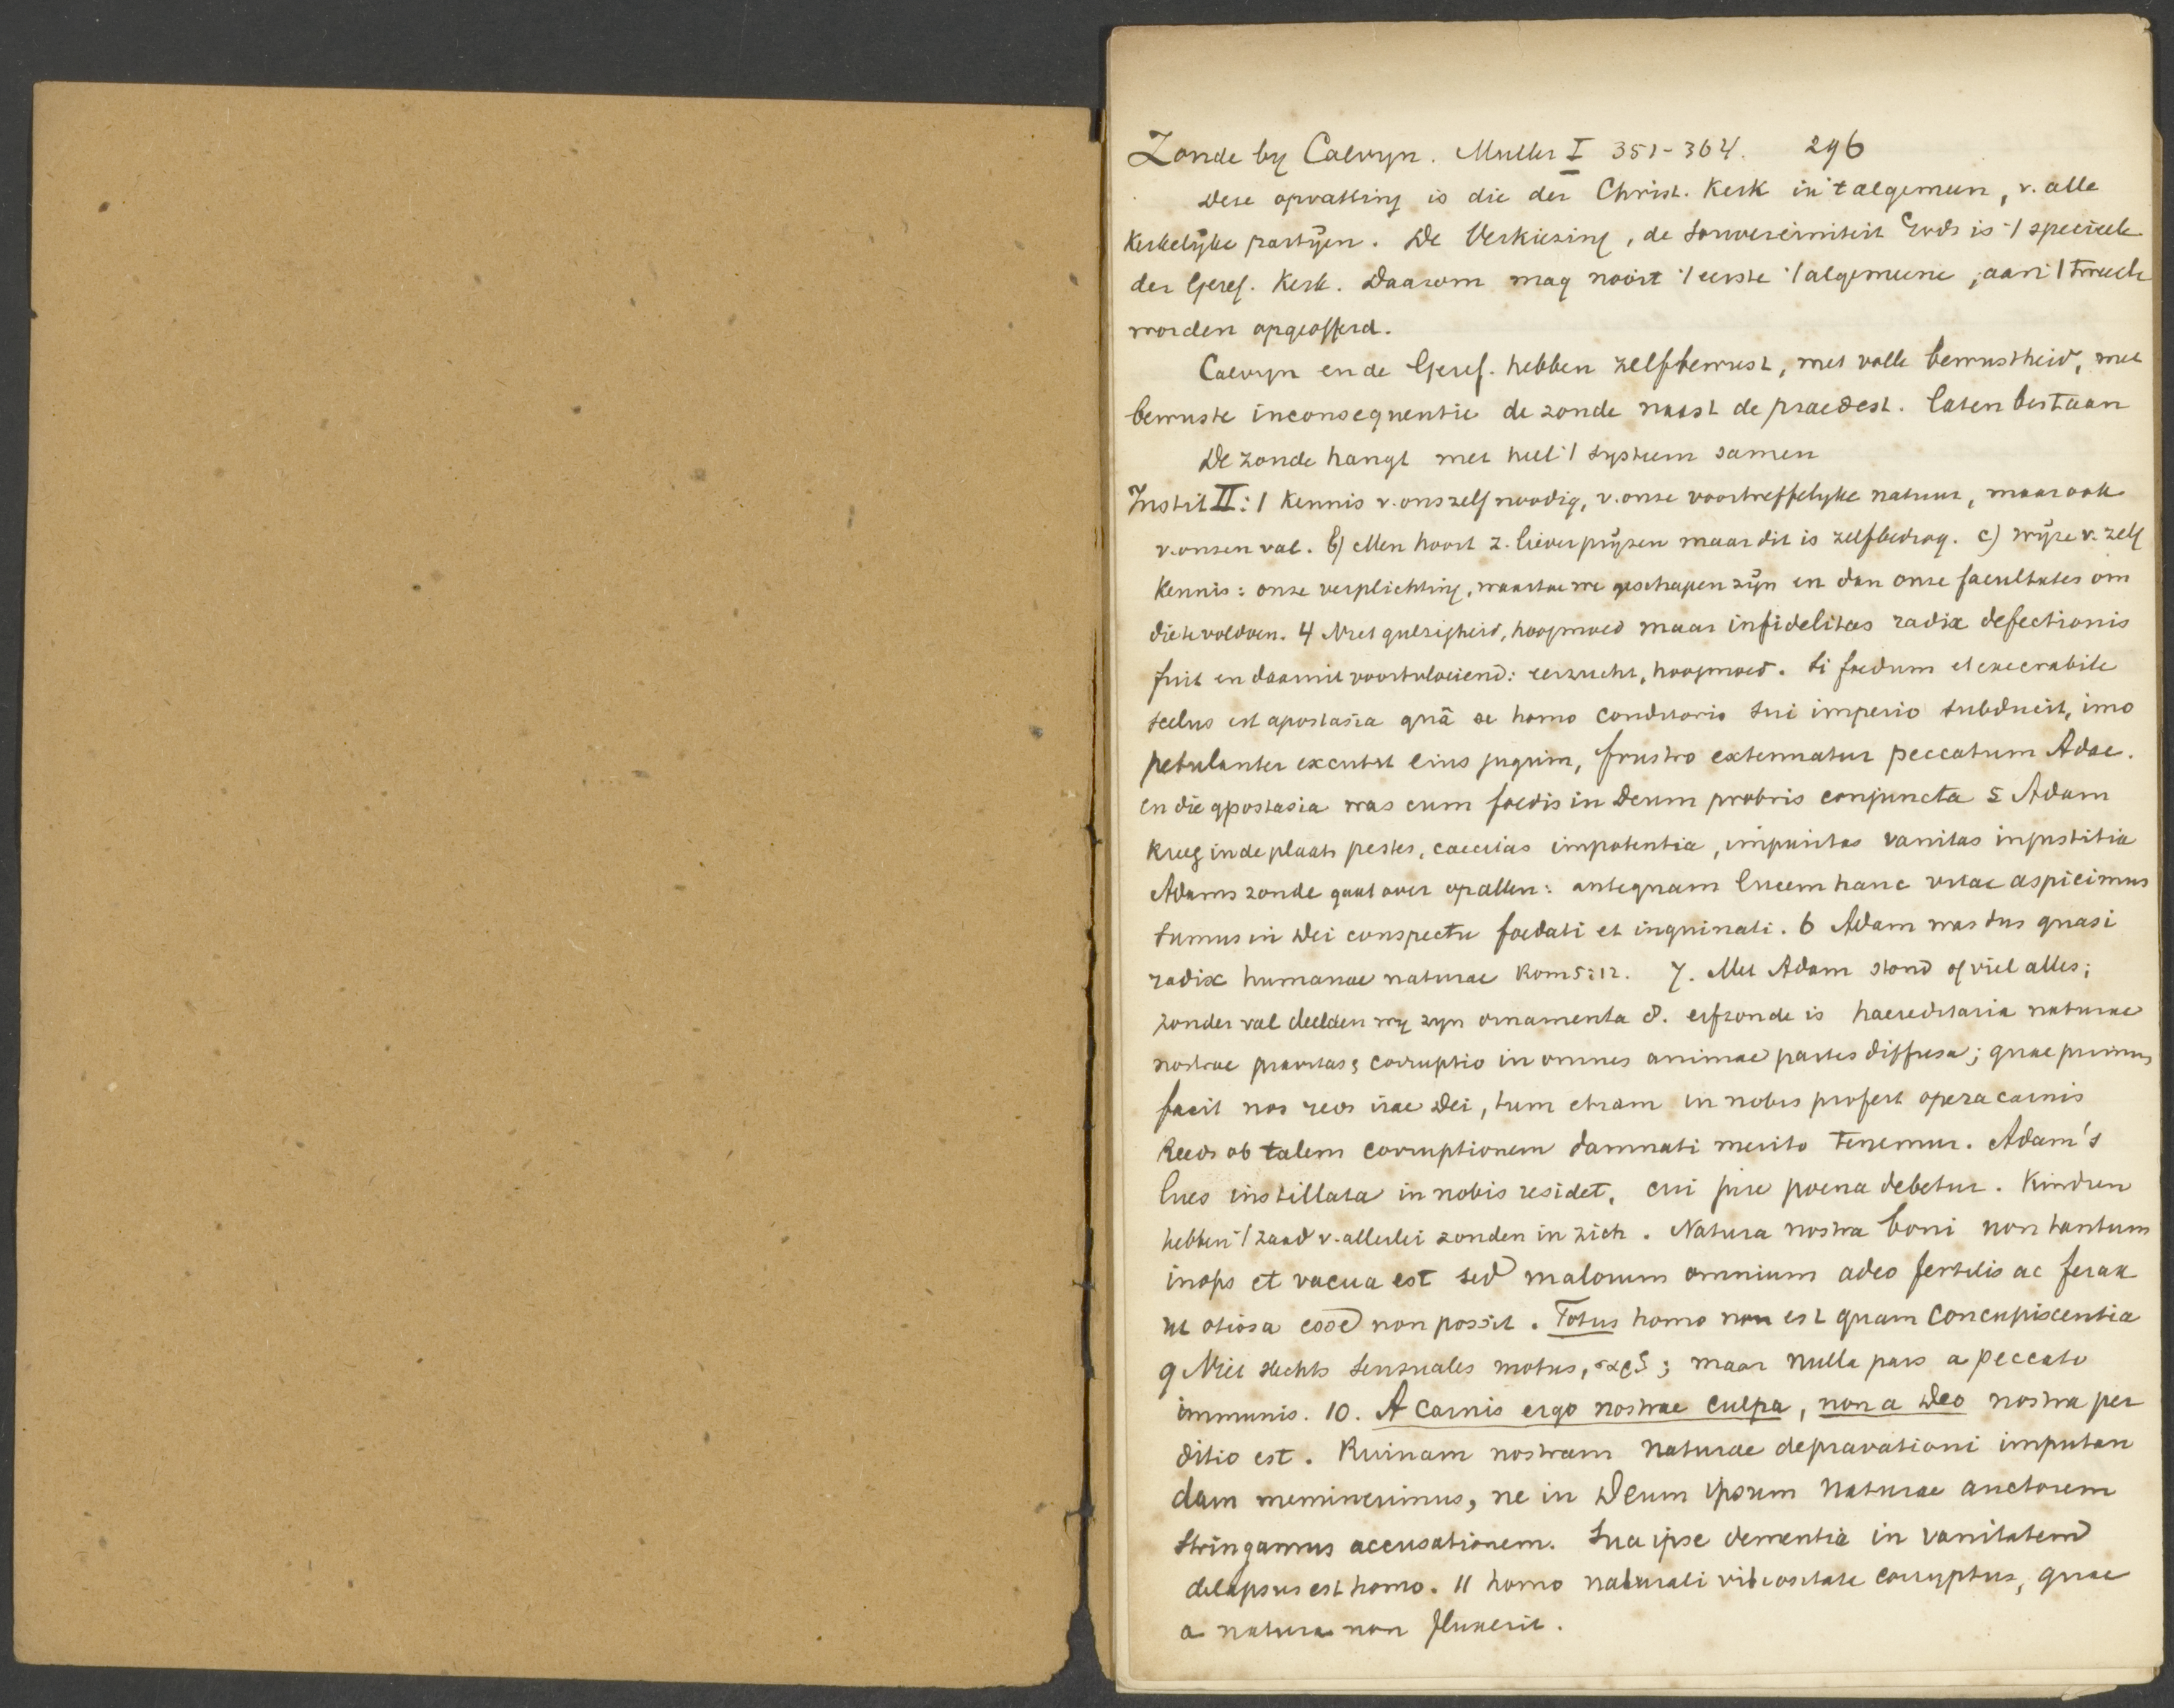 Zonde by Calvyn. Muller I 351-364. 296
Deze opvatting is die der Christ. Kerk in 't algemeen, v. alle
Kerkelyke partyen. De Verkiezing, de Souvereiniteit Gods is 't specieele
der Geref. Kerk. Daarom mag nooit 't eerste 't algemeene, aan 't tweede
worden opgeofferd.
Calvyn en de Geref. hebben zelfbewust, met volle bewustheid, met
bewuste inconsequentie de zonde naast de praedest. laten bestaan
De zonde hangt met heel 't systeem samen
Instit II: 1 Kennis v. onszelf noodig, v. onze voortreffelyke natuur, maar ook
v. onzen val. b) Men hoort z. liever pryzen maar dit is zelfbedrog. c) wyze v. zelf
Kennis: onze verplichting, waartoe we geschapen zyn en dan onze facultates om
die te voldoen. 4 Niet gulzigheid, hoogmoed maar infidelitas radix defectionis
fuit en daaruit voortvloeiend: eerzucht, hoogmoed. Si foedum et execrabile
scelus est apostasia quâ se homo conditoris sui imperio subducit, imo
petulanter excutit eius jugum, frustro extenuatur peccatum Adae.
en die apostasia was cum foedis in Deum probris conjuncta 5 Adam
kreeg in de plaats pestes, caecitas impotentia, impuritas vanitas injustitia
Adams zonde gaat over op allen: antequam lucem hanc vitae aspicimus
sumus in Dei conspectu foedati et inquinati. 6 Adam was dus quasi
radix humanae naturae Rom 5:12. 7. Met Adam stond of viel alles;
zonder val deelden wy zyn ornamenta 8. erfzonde is haereditaria naturae
nostrae pravitas & corruptio in omnes animae partes diffusa; quae primum
facit nos reos irae Dei, tum etiam in nobis profert opera carnis
Reeds ob talem corruptionem damnati merito tenemur. Adam's
lues instillata in nobis residet, cui jure poena debetur. Kindren
hebben 't zaad v. allerlei zonden in zich. Natura nostra boni non tantum
inops et vacua est sed malorum omnium adeo fertilis ac ferax
ut otiosa esse non possit. Totus homo non est quam concupiscentia
9 Niet slechts sensuales motus, σαρξ; maar nulla pars a peccato
immunis. 10. A carnis ergo nostrae culpa, non a Deo nostra per
ditio est. Ruinam nostram naturae depravationi imputan
dam meminerimus, ne in Deum ipsum naturae auctorem
stringamus accusationem. Sua ipse dementia in vanitatem
delapsus est homo. 11 homo naturali vitiositate corruptus, quae
a natura non fluxerit.